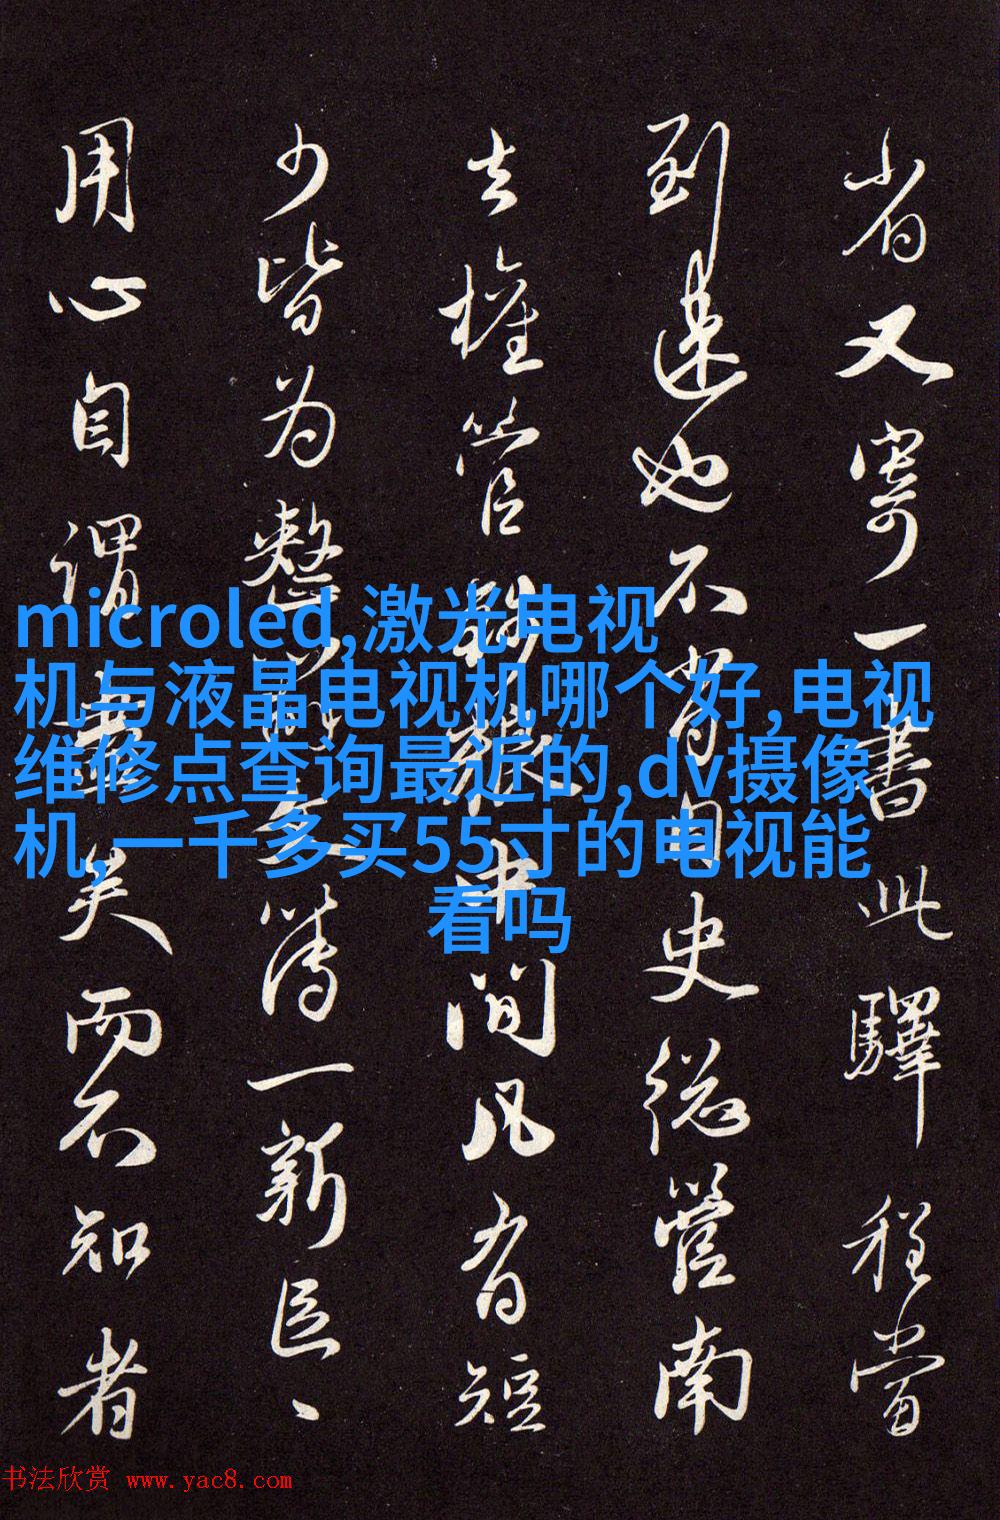 省又寄一書此驛程當
到遠也不肯自史總管南
去權管
間凡有短
少皆为整
薄一新邑
用心自謂
矣而不知者
microled,激光电视
机与液晶电视机哪个好,电视
维修点查询最近的,dv摄像
机,一千多买55寸的电视能
看吗
书法欣赏 www.yac8.com